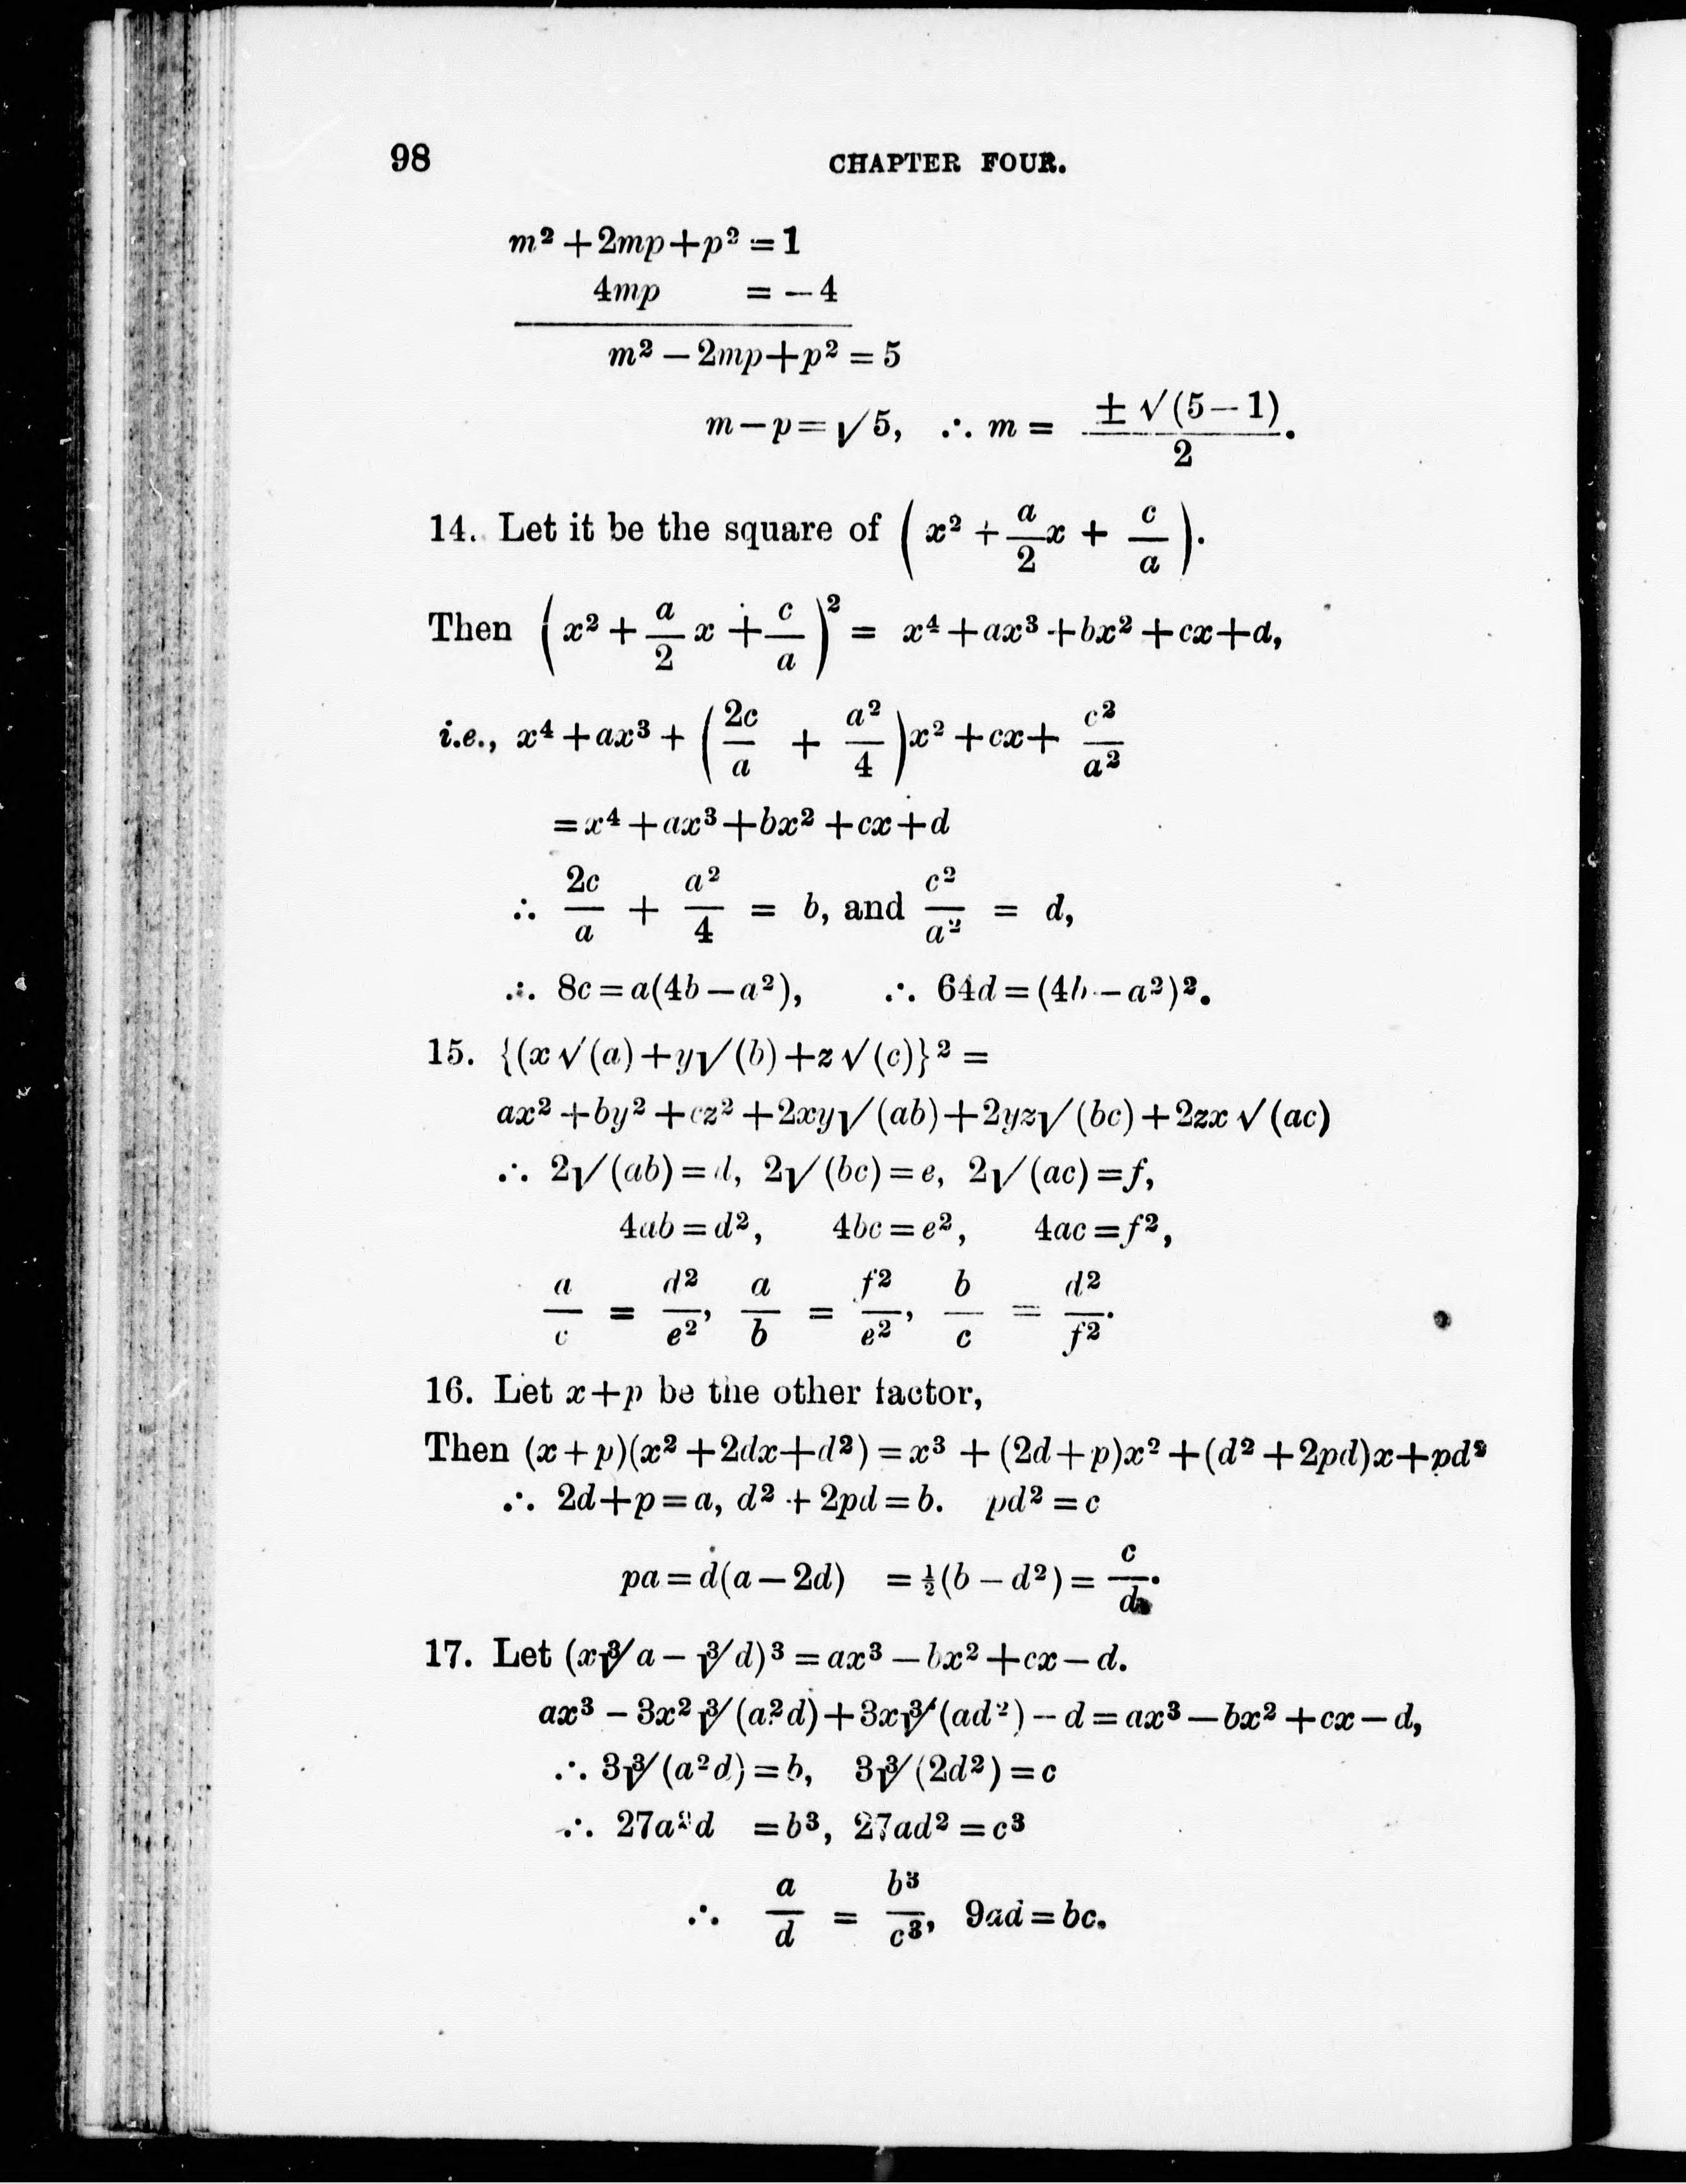 98 CHAPTER FOUR.
m² + 2mp + p² = 1
4mp = − 4
m² − 2mp + p² = 5
m − p = √5, ∴ m = ± √(5 − 1) / 2.
14. Let it be the square of (x² + a/2 x + c/a).
Then (x² + a/2 x + c/a)² = x⁴ + ax³ + bx² + cx + d,
i.e., x⁴ + ax³ + (2c/a + a²/4)x² + cx + c²/a²
= x⁴ + ax³ + bx² + cx + d
∴ 2c/a + a²/4 = b, and c²/a² = d,
∴ 8c = a(4b − a²), ∴ 64d = (4b − a²)².
15. {(x√(a) + y√(b) + z√(c)}² =
ax² + by² + cz² + 2xy√(ab) + 2yz√(bc) + 2zx√(ac)
∴ 2√(ab) = d, 2√(bc) = e, 2√(ac) = f,
4ab = d², 4bc = e², 4ac = f²,
a/c = d²/e², a/b = f²/e², b/c = d²/f².
16. Let x + p be the other factor,
Then (x + p)(x² + 2dx + d²) = x³ + (2d + p)x² + (d² + 2pd)x + pd²
∴ 2d + p = a, d² + 2pd = b. pd² = c
pa = d(a − 2d) = ½(b − d²) = c/d.
17. Let (x∛a − ∛d)³ = ax³ − bx² + cx − d.
ax³ − 3x²∛(a²d) + 3x∛(ad²) − d = ax³ − bx² + cx − d,
∴ 3∛(a²d) = b, 3∛(2d²) = c
∴ 27a²d = b³, 27ad² = c³
∴ a/d = b³/c³, 9ad = bc.